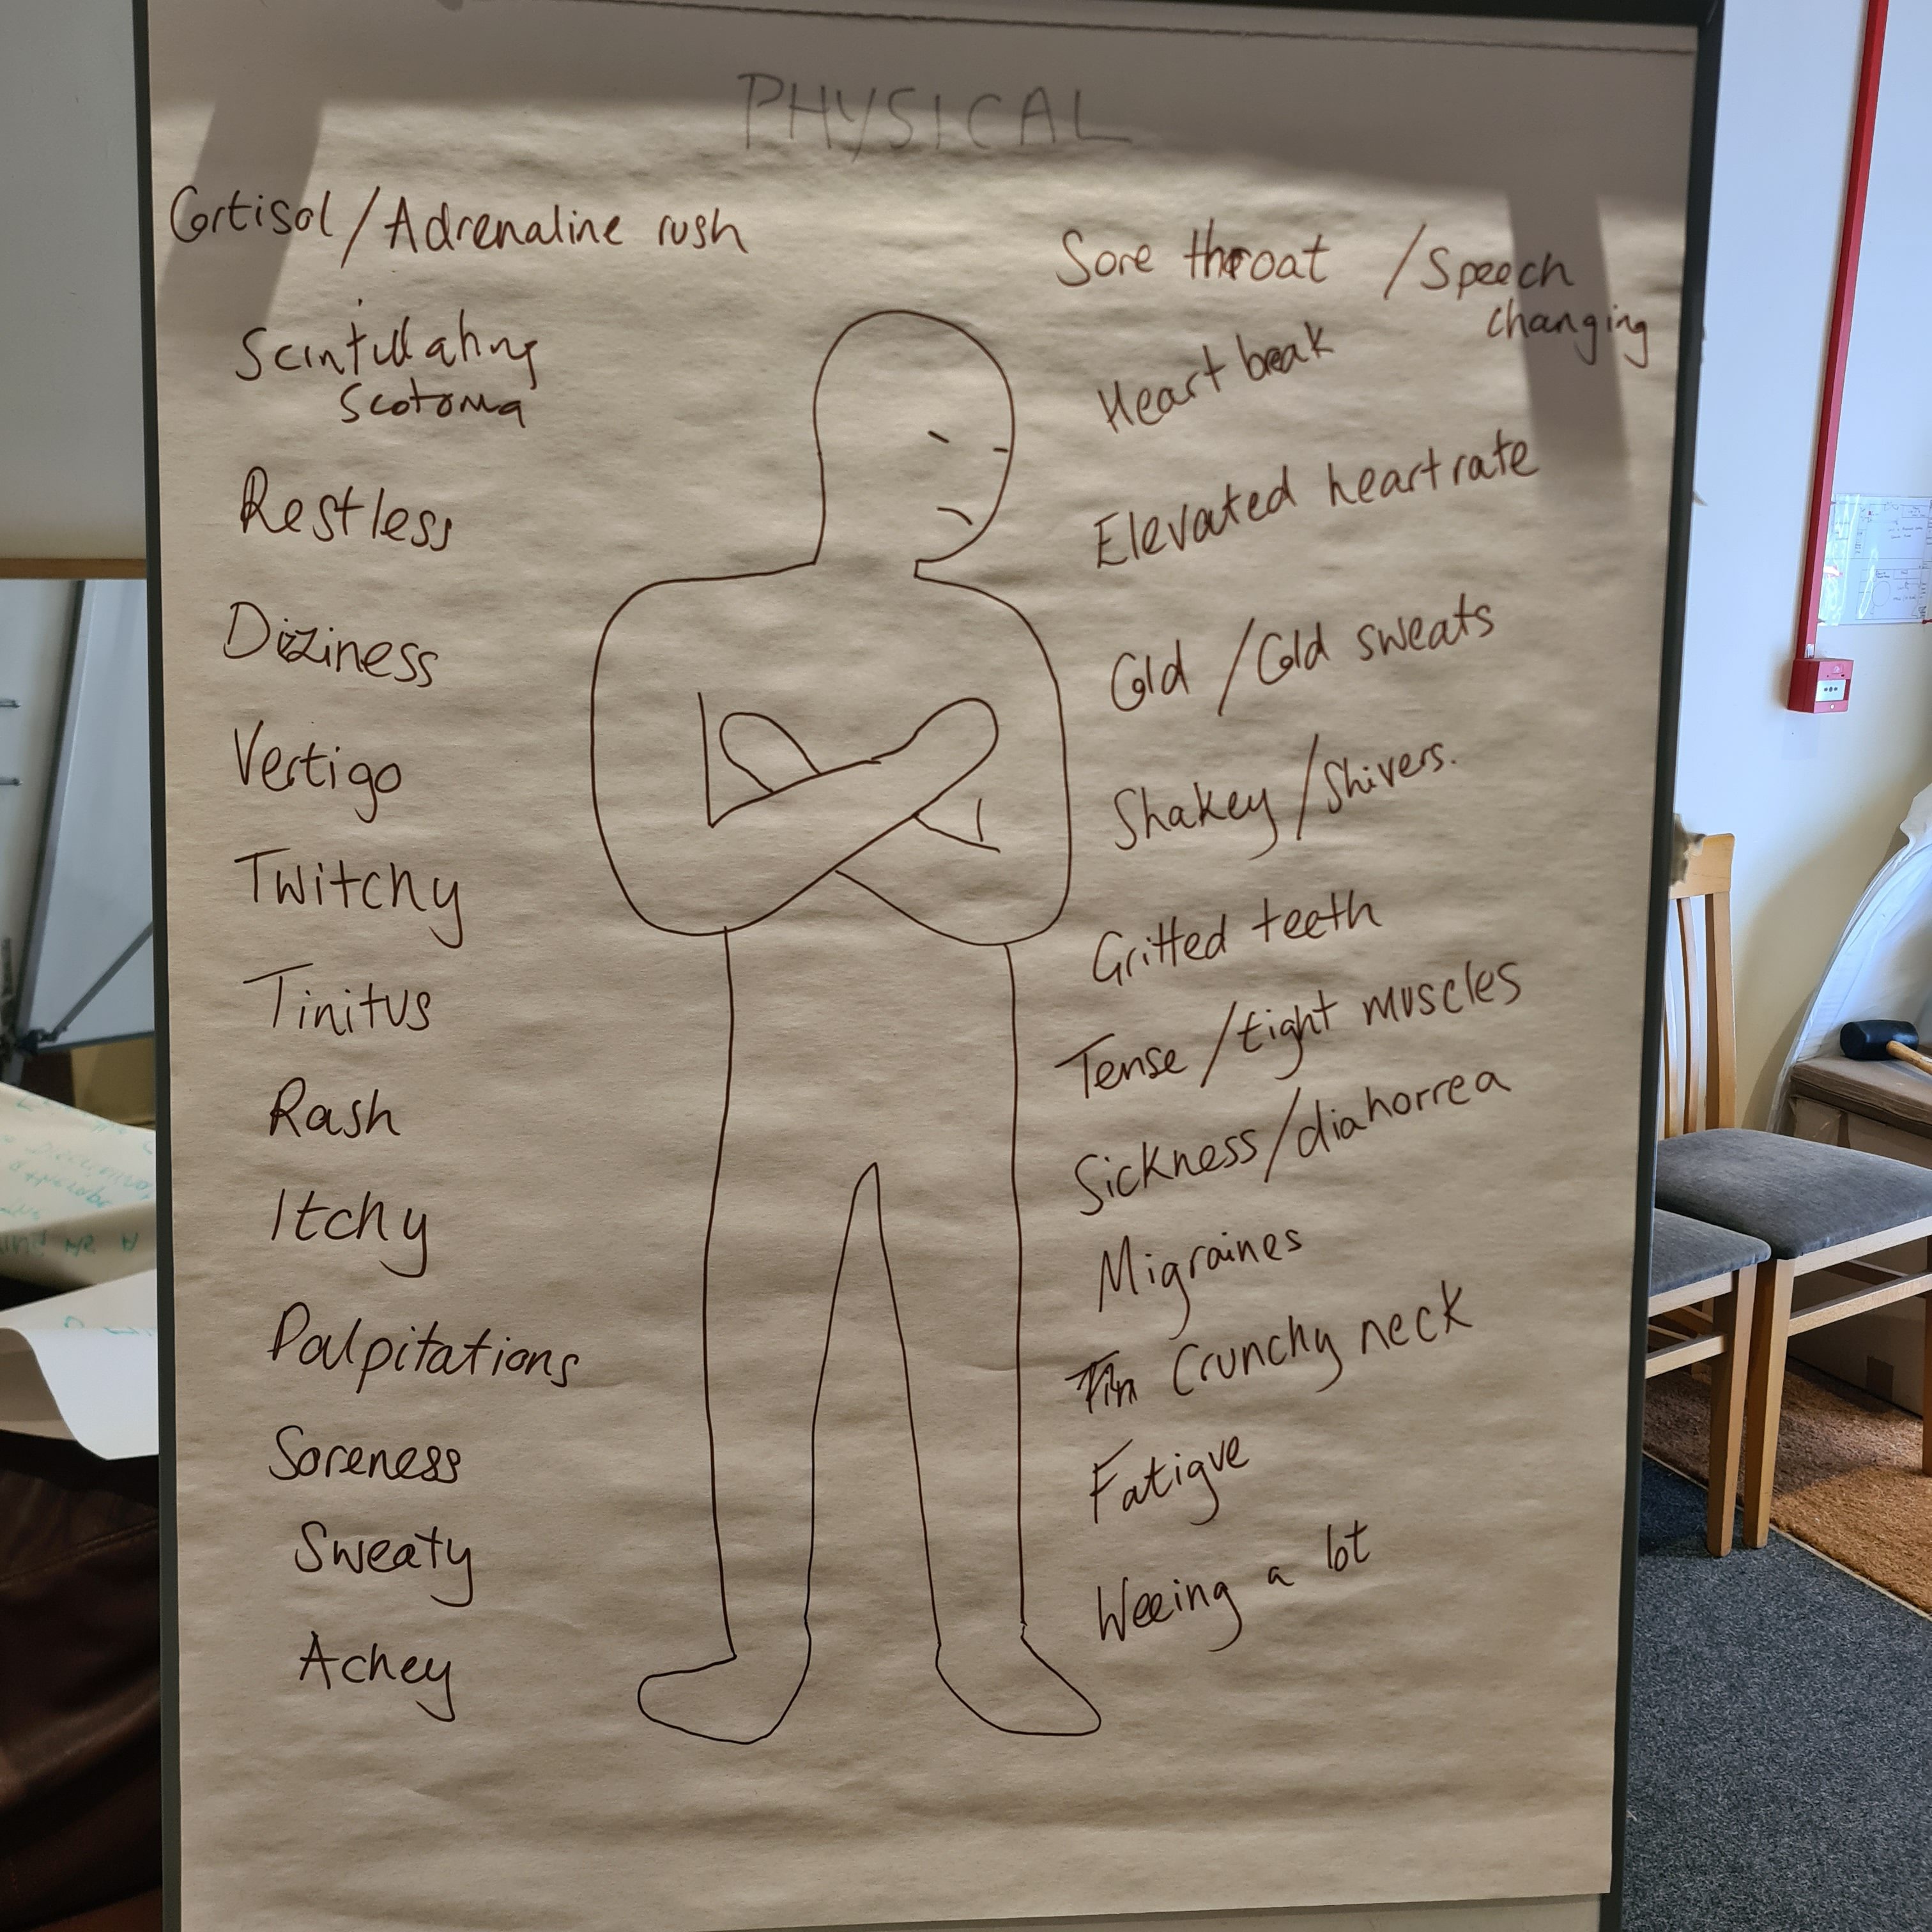 PHYSICAL
Cortisol / Adrenaline rush
Scintillating
Scotoma
Restless
Dizziness
Vertigo
Twitchy
Tinitus
Rash
Itchy
Palpitations
Soreness
Sweaty
Achey
Sore throat / Speech
changing
Heart break
Elevated heart rate
Cold / Cold sweats
Shakey / Shivers.
Gritted teeth
Tense / tight muscles
Sickness / diahorrea
Migraines
Crunchy neck
Fatigue
Weeing a lot